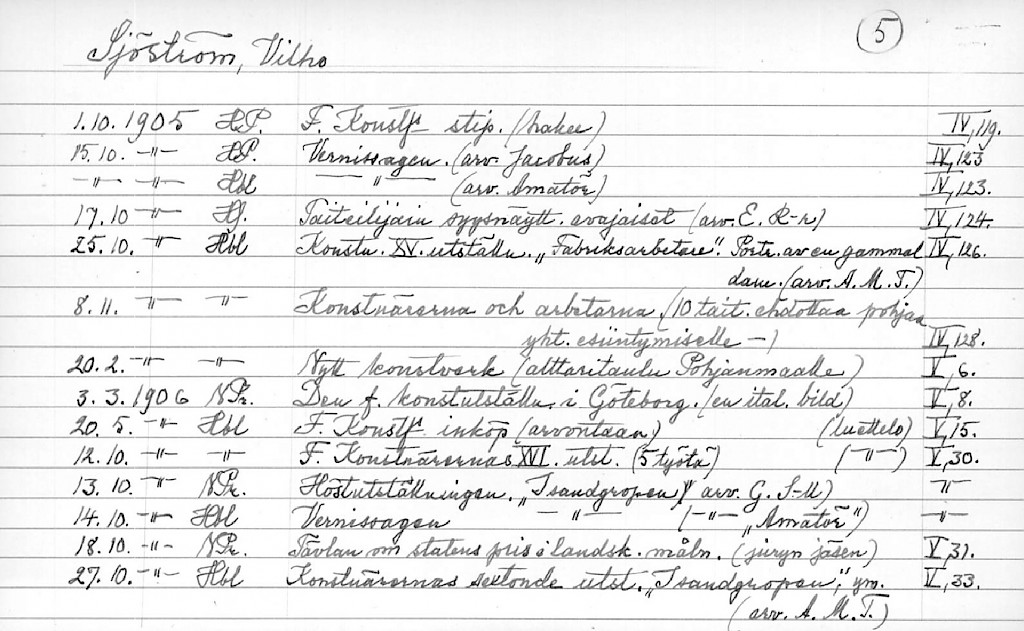 5
Sjöström, Vilho
1.10. 1905 H.P. F. Konstf. stip. (hakee) IV, 119.
15.10. -"- H.P. Vernissagen. (arv. Jacobus) IV, 123
-"- -"- Hbl -"- (arv. Amatör) IV, 123.
17.10 -"- Taiteilijain syysnäytt. avajaiset (arv. E. R-r) IV, 124.
25.10. -"- Hbl Konstn. XV. utställn. „Fabriksarbetare". Portr. av en gammal IV, 126.
dam. (arv. A. M. T.)
8.11. -"- -"- Konstnärerna och arbetarna. (10 tait. ehdottaa pohjaa
yht. esiintymiselle -) IV, 128.
20.2. -"- -"- Nytt konstverk (alttaritaulu Pohjanmaalle) V, 6.
3.3. 1906 N.Pr. Den f. konstutställn. i Göteborg. (en ital. bild) V, 8.
20.5. -"- Hbl F. Konstf. inköp (arvontaan) (luettelo) V, 15.
12.10. -"- -"- F. Konstnärernas XVI. utst. (5 työtä) (-"-) V, 30.
13.10. -"- N.Pr. Höstutställningen. „I sandgropen" (arv. G. S-ll) -"-
14.10. -"- Hbl Vernissagen -"- (-"- „Amatör") -"-
18.10. -"- N.Pr. Tävlan om statens pris i landsk. måln. (juryn jäsen) V, 31.
27.10. -"- Hbl Konstnärernas sextonde utst. „I sandgropen", ym. V, 33.
(arv. A. M. T.)